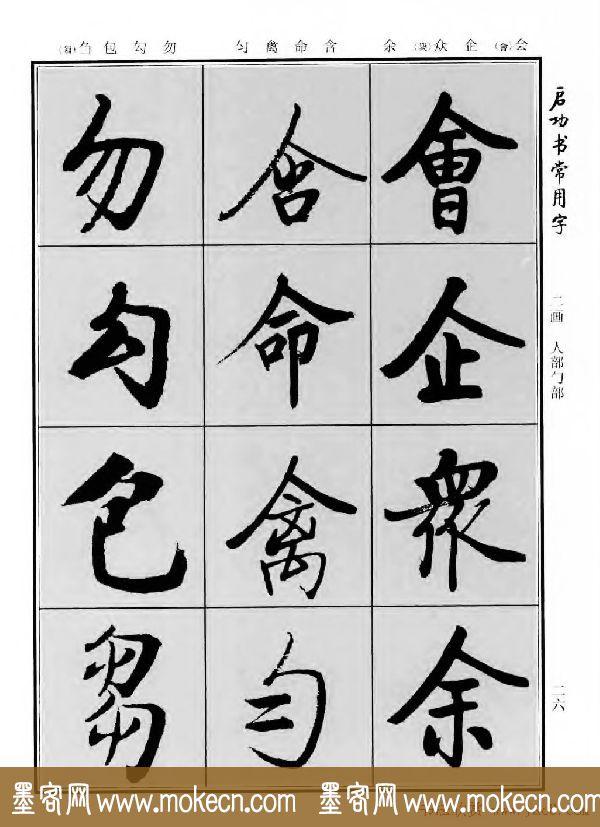 启功书常用字
二画 人部勹部
二六
会(會)企众(衆)余
含命禽匀
勿勾包刍(芻)
會企衆余
含命禽匀
勿勾包芻
墨客网 www.mokecn.com 墨客网 www.mokecn.com